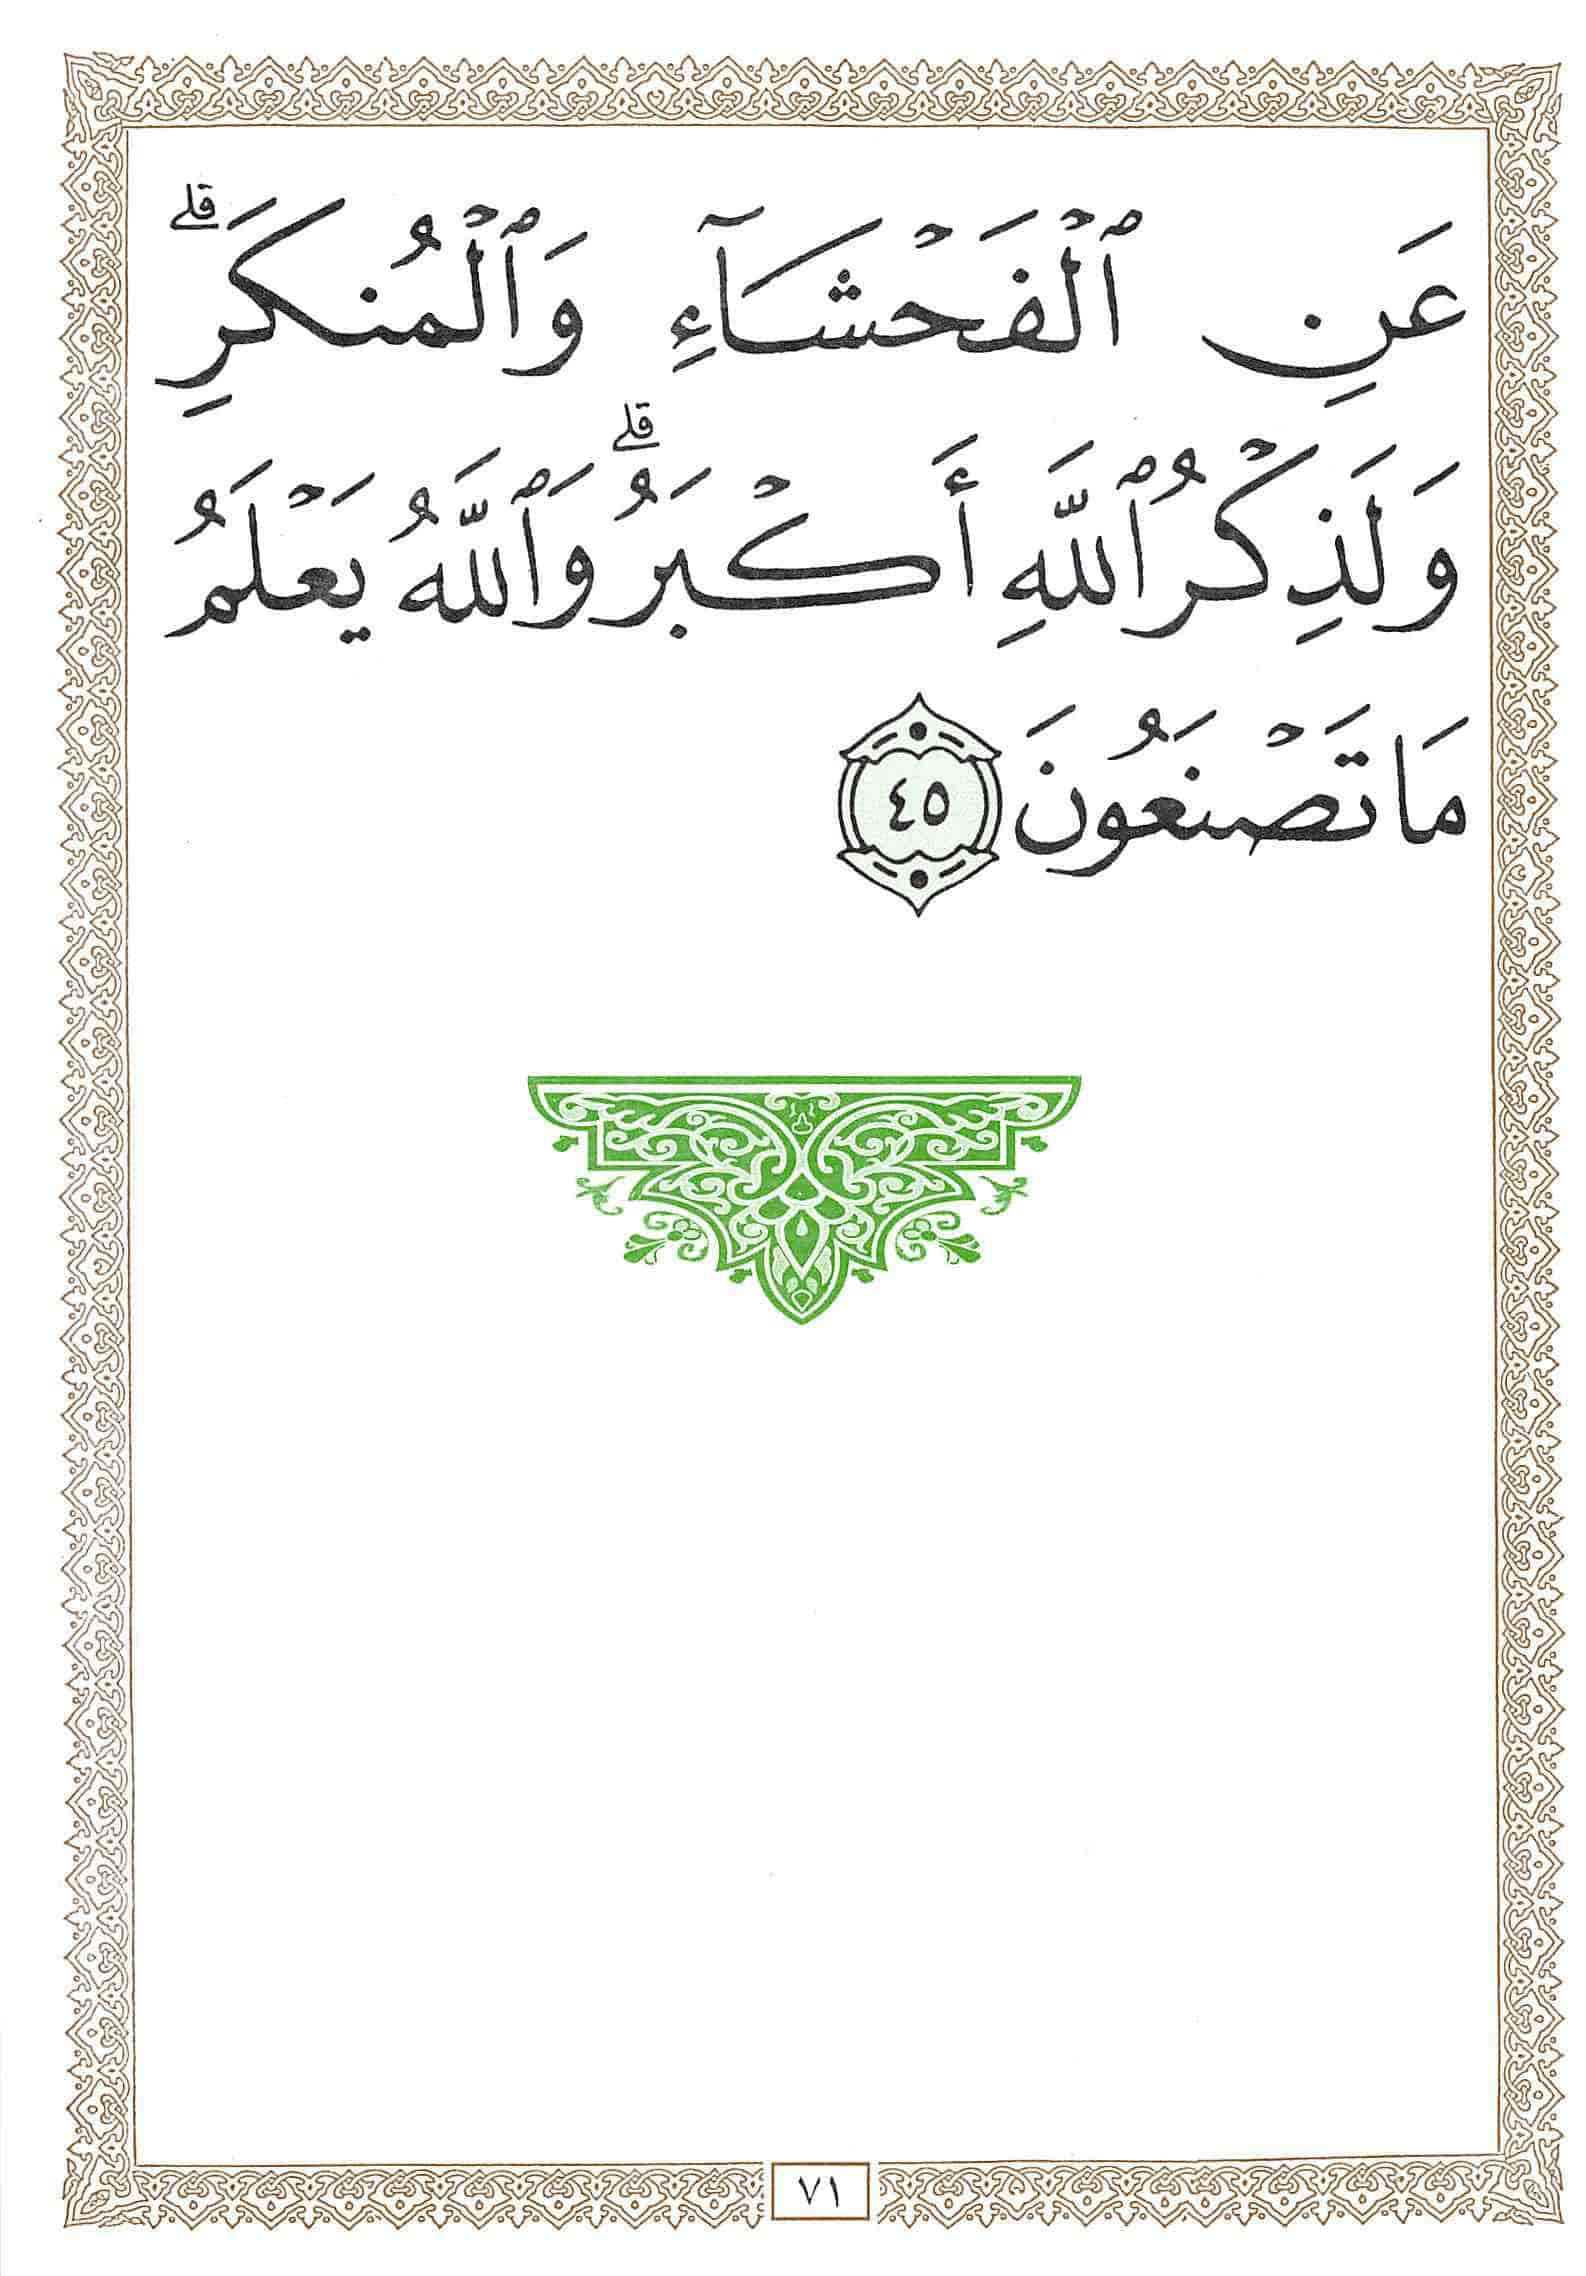 عَنِ ٱلْفَحْشَآءِ وَٱلْمُنكَرِ ۗ
وَلَذِكْرُ ٱللَّهِ أَكْبَرُ ۗ وَٱللَّهُ يَعْلَمُ
مَا تَصْنَعُونَ ٤٥
٧١